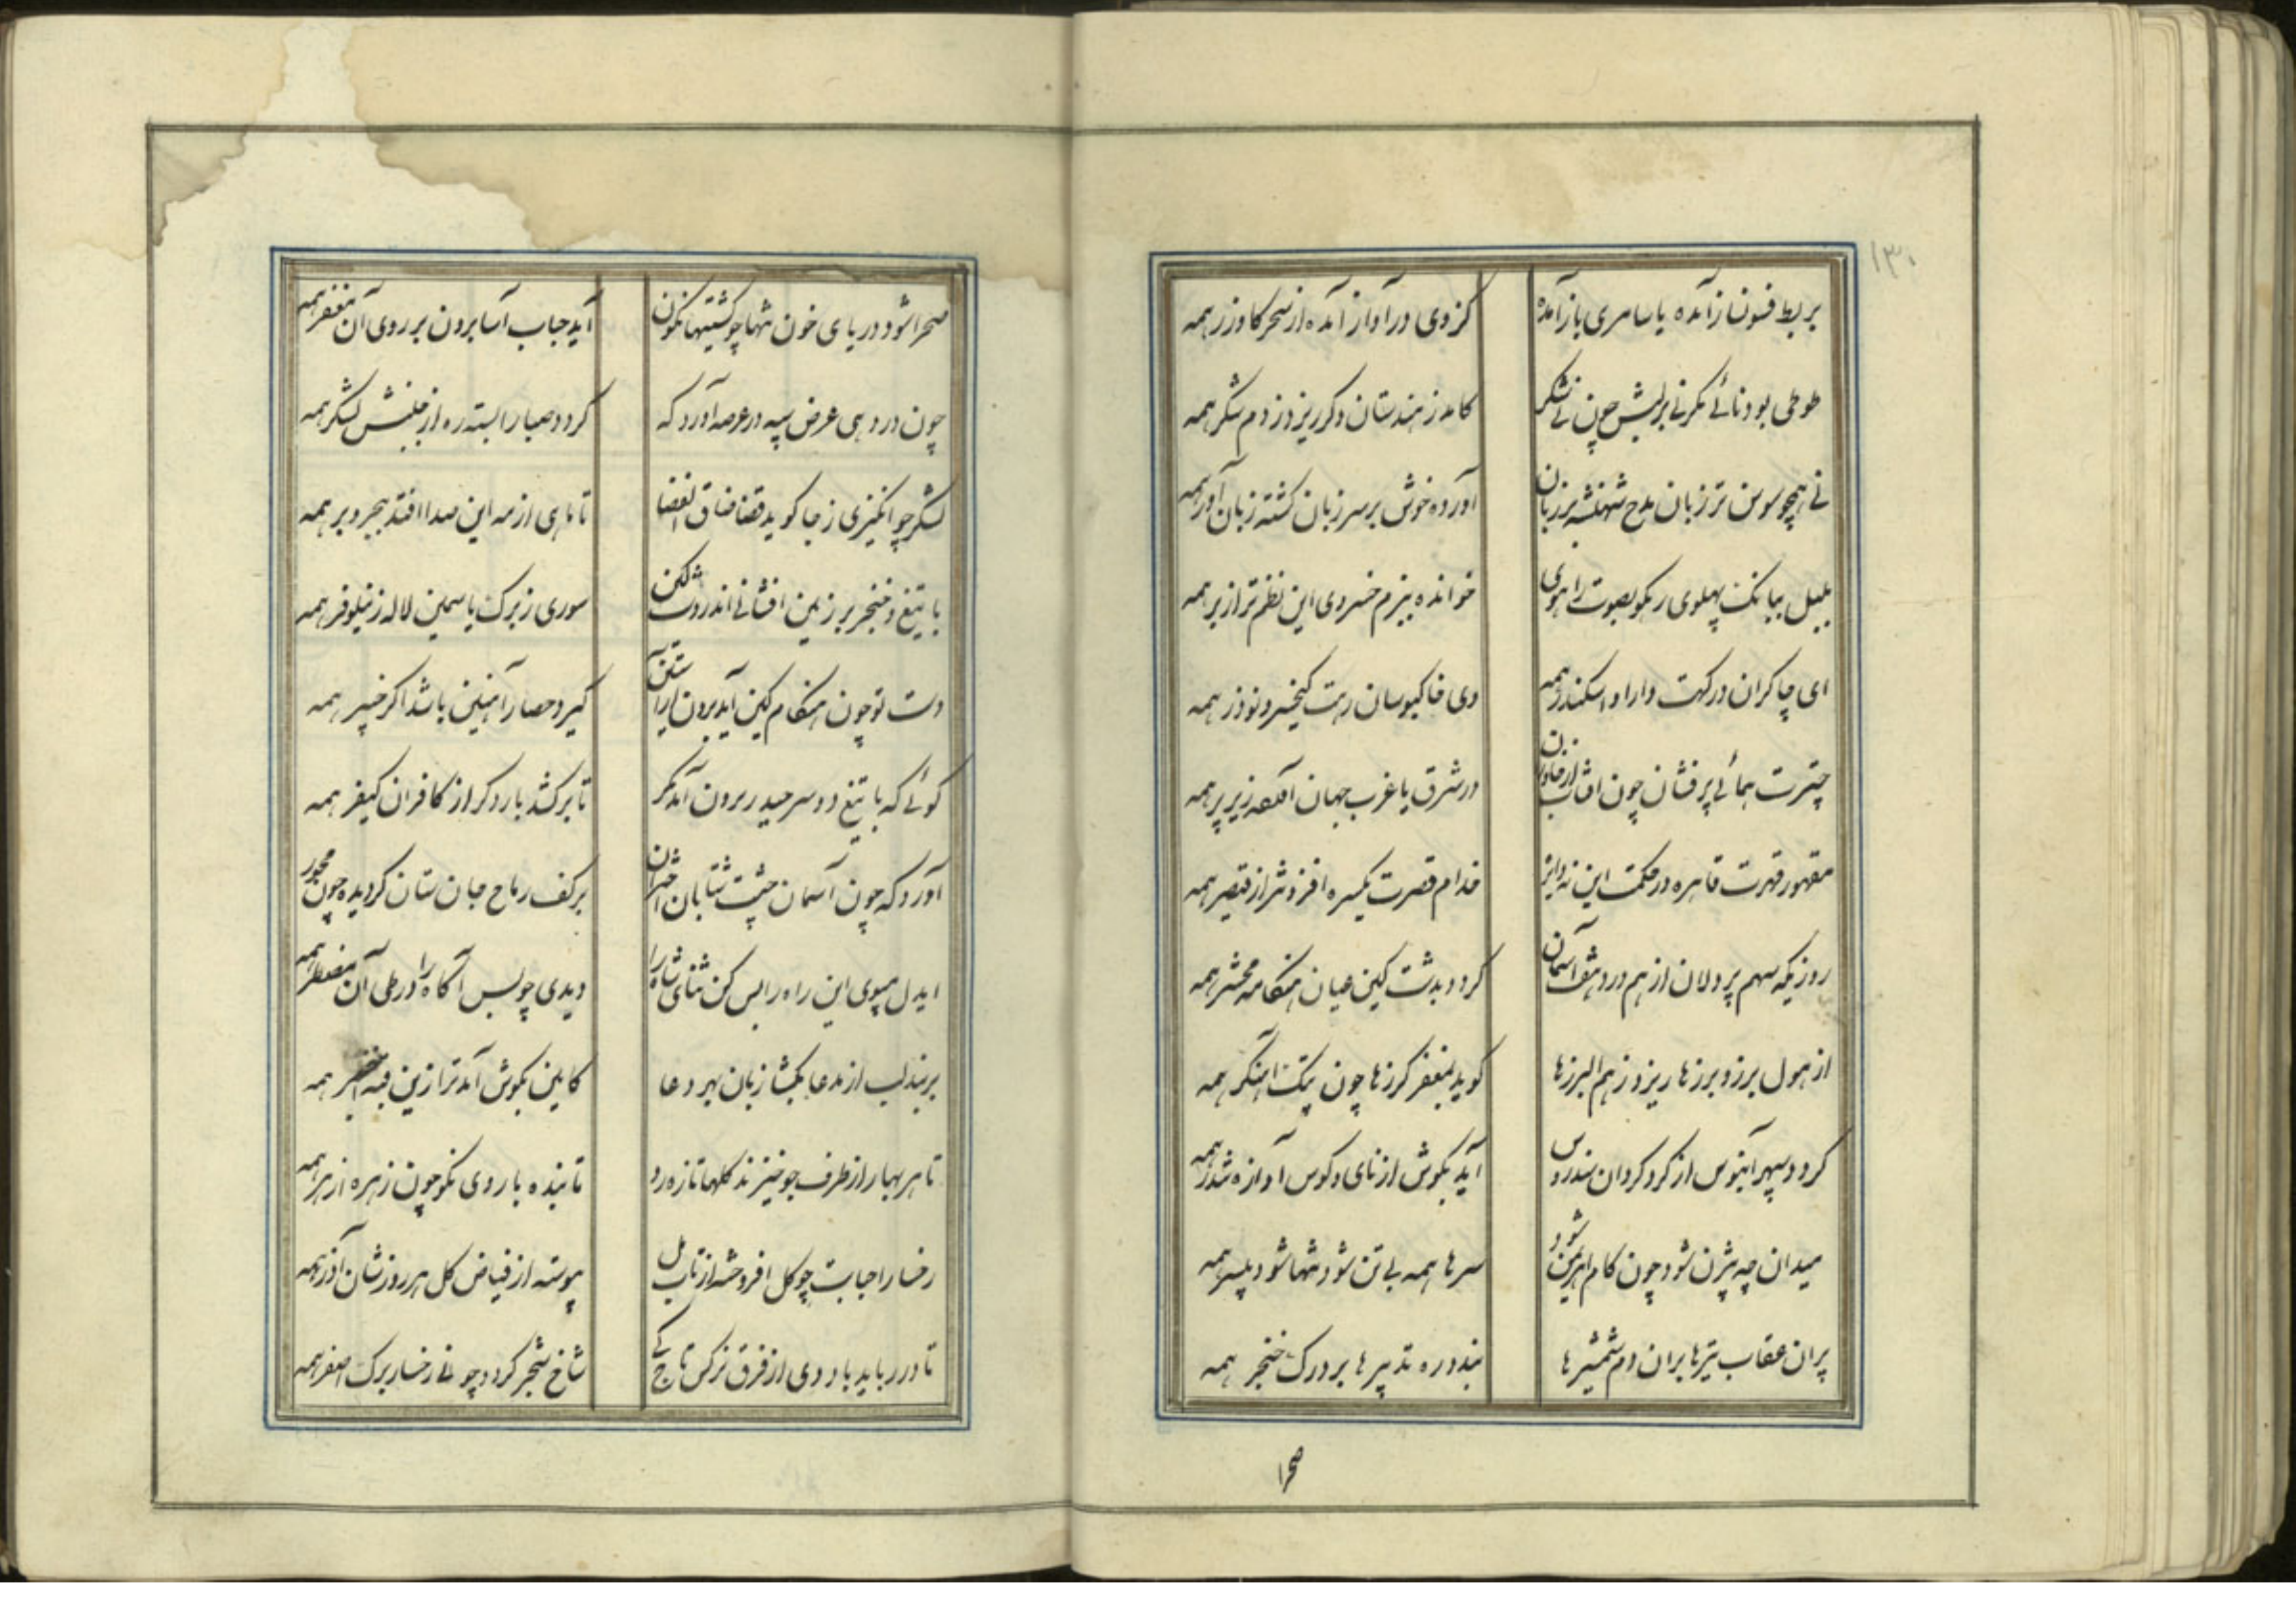 ۱۳۰
بربط فسونساز آمده یا سامری باز آمده
کز وی در آواز آمده از سحر گاو زر همه
طوطی بود نائی مگر نی بر لبش چون نی شکر
کامد ز هندستان دگر ریزد ز دم شکر همه
نی همچو سوسن تر زبان مدح شهنشه بر زبان
آورده خوش بر سر زبان گشته زبان آور همه
بلبل ببانگ پهلوی ز نکو بصوت راهوی
خوانده ببزم خسروی این نظم تر از بر همه
ای چاکران درگهت دارا و اسکندر همه
وی خاکبوسان رهت کیخسرو و نوذر همه
چترت همائی پرفشان چون آفتاب از خاوران
در شرق یا غرب جهان آنهمه زیر پر همه
مقهور قهرت قاهره در حکمت این نه دایره
خدام قصرت یکسره افزونتر از قیصر همه
روزیکه سهم پردلان از هم درد هفت آسمان
گردد بدشت کین عیان هنگامه محشر همه
از هول برز و برزها ریزد ز هم البرزها
کوبد بمغفر گرزها چون پتک آهنگر همه
گردد سپهر آبنوس از گرد گردان سندروس
آید بگوش از نای و کوس آوازه تندر همه
میدان چه بیژن شود چون کام اهریمن شود
سرها همه بی تن شود تنها شود بیسر همه
پران عقاب تیرها بران دم شمشیرها
بندد ره تدبیرها بر درک خنجر همه
صحرا
صحرا شود دریای خون تنها چو کشتیها نگون
آید حباب آسا برون بر روی آن مغفر همه
چون در دهی عرض سپه در عرصه آورد که
گردد صبا را بسته ره از جنبش لشکر همه
لشکر چو انگیزی ز جا گوید قضا ضاق الفضا
تا ماهی از مه این صدا افتد ببحر و بر همه
با تیغ و خنجر بر زمین افشانی اندر دشت کین
سوری ز برگ یاسمین لاله ز نیلوفر همه
دست تو چون هنگام کین آید برون از آستین
گیرد حصار آهنین باشد اگر خیبر همه
گوئی که با تیغ دو سر حیدر برون آمد مگر
تا برکشد بار دگر از کافران کیفر همه
آوردگه چون آسمان جیشت شتابان اختران
بر کف رماح جانستان گردیده چون محور همه
ایدل مپوی این راه را بس کن ثنای شاه را
دیدی چو بس آگاه را در طی آن مضطر همه
بربند لب از مدعا بگشا زبان بهر دعا
کامین بگوش آمد ترا زین قبه اخضر همه
تا هر بهار از طرف جو خیزند گلها تازه رو
تابنده با روی نکو چون زهره ازهر همه
رخسار احبابت چو گل افروخته از تاب مل
پیوسته از فیاض کل هر روزشان آذر همه
تا در رباید باد دی از فرق نرگس تاج کی
شاخ شجر گردد چو نی رخسار برگ اصفر همه